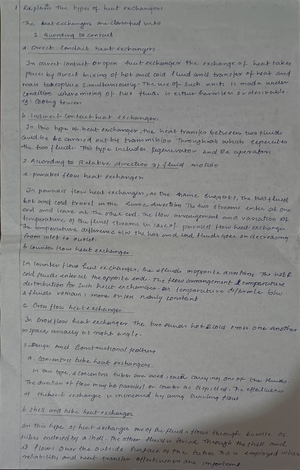 1. Explain the types of heat exchangers
The heat exchangers are classified into
1. According to contact
a. Direct contact heat exchangers
In direct contact or open heat exchanger the exchange of heat takes
place by direct mixing of hot and cold fluid and transfer of heat and
mass takes place simultaneously. The use of such units is made under
condition where mixing of two fluids is either harmless or desirable
eg: Cooling tower
b. Indirect Contact heat exchanger
In this type of heat exchanger, the heat transfer between two fluids
could be carried out by transmission through wall which separates
the two fluids. This type includes Regenerators and Recuperators.
2. According to Relative direction of fluid motion
a. parallel flow heat exchanger
In parallel flow heat exchanger, as the name suggests, the two fluid
hot and cold travel in the same direction. The two streams enter at one
end and leave at the other end. The flow arrangement and variation of
temperature of the fluid streams in case of parallel flow heat exchanger
the temperature difference b/w the hot and cold fluids goes on decreasing
from inlet to outlet.
b. Counter flow heat exchanger
In counter flow heat exchanger, the fluids in opposite directions. The hot &
cold fluids enter at the opposite ends. The flow arrangement & temperature
distribution for such heat exchanger the temperature difference b/w
fluids remains more or less nearly constant
c. Cross flow heat exchanger
In Cross flow heat exchanger the two fluids hot & cold cross one another
in space usually at right angle.
3. Design and Constructional features
a. Concentric tube heat exchangers
In this type, 2 concentric tubes are used, each carrying one of the fluids
The direction of flow may be parallel or counter as
The effectiveness
of the heat exchanger is increased by using swirling flow
b. Shell and tube heat exchanger
In this type of heat exchanger one of the fluids flows through bundle of
tubes enclosed by a shell. The other fluid is forced through the shell and
it flows over the outside surface of the tubes. This is employed where
reliability and heat transfer effectiveness are important